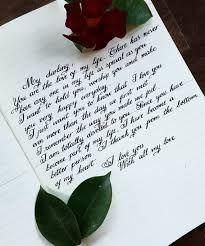 My darling,
You are the love of my life. There has never
been any one in my life as special as you
I want to hold you, and make
you very happy everyday.
I just want you to know that I love you
even more than the day we first met.
I remember the way you made me feel
I am totally devoted to you. Since you have
become part of my life I have become a
better person. I thank you from the bottom
of my heart. I love you
With all my love